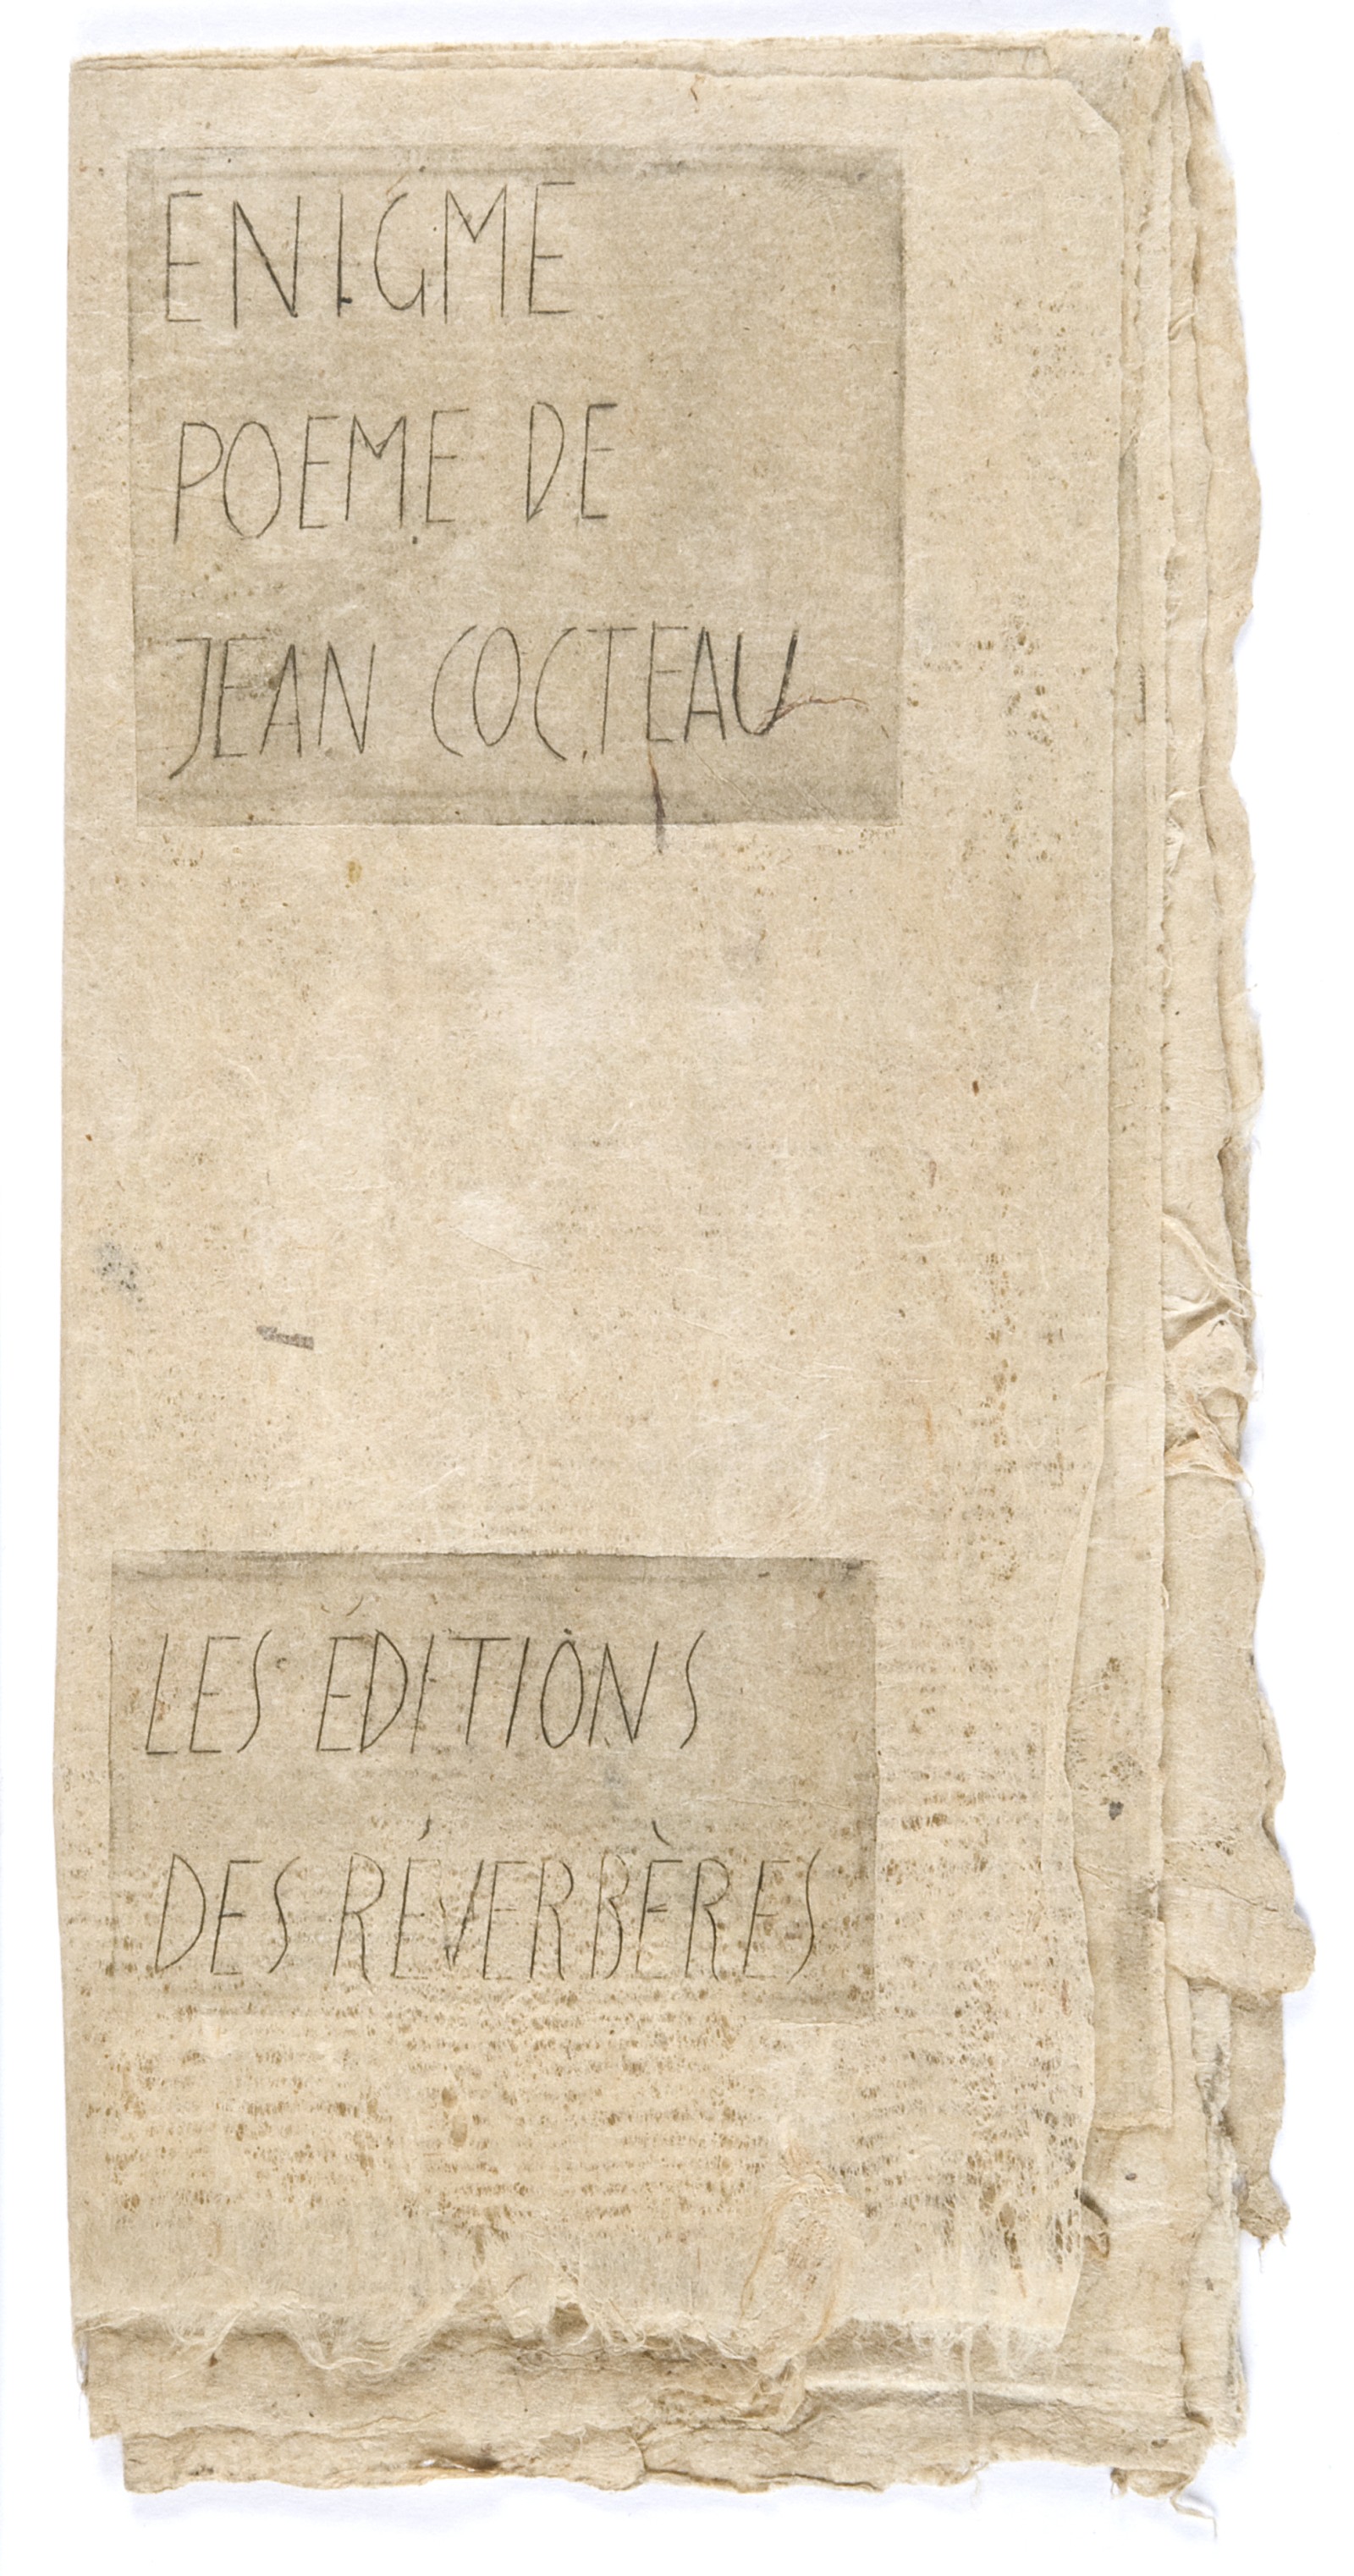 ENIGME
POEME DE
JEAN COCTEAU
LES ÉDITIONS
DES RÉVERBÈRES